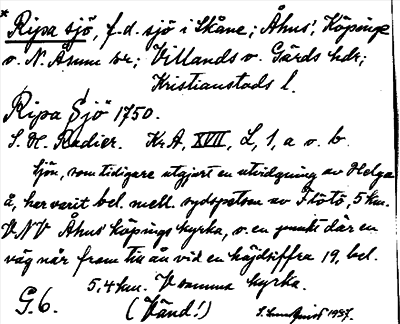 * Ripa sjö, f.d. sjö i Skåne; Åhus, Köpinge
o. N. Åsum snr; Villands o. Gärds hdr;
Kristianstads l.
Ripa Sjö 1750.
S. N. Radier. Kr.A, XVII, L, 1, a o. b.
Sjön, som tidigare utgjort en utvidgning av Helge
å, har varit bel. mell. sydspetsen av Flötö, 5 km.
VNV Åhus köpings kyrka, o. en punkt där en
väg når fram till ån vid en höjdsiffra 19, bel.
5,4 km. V samma kyrka.
G. 6. (Vänd!) 1937.